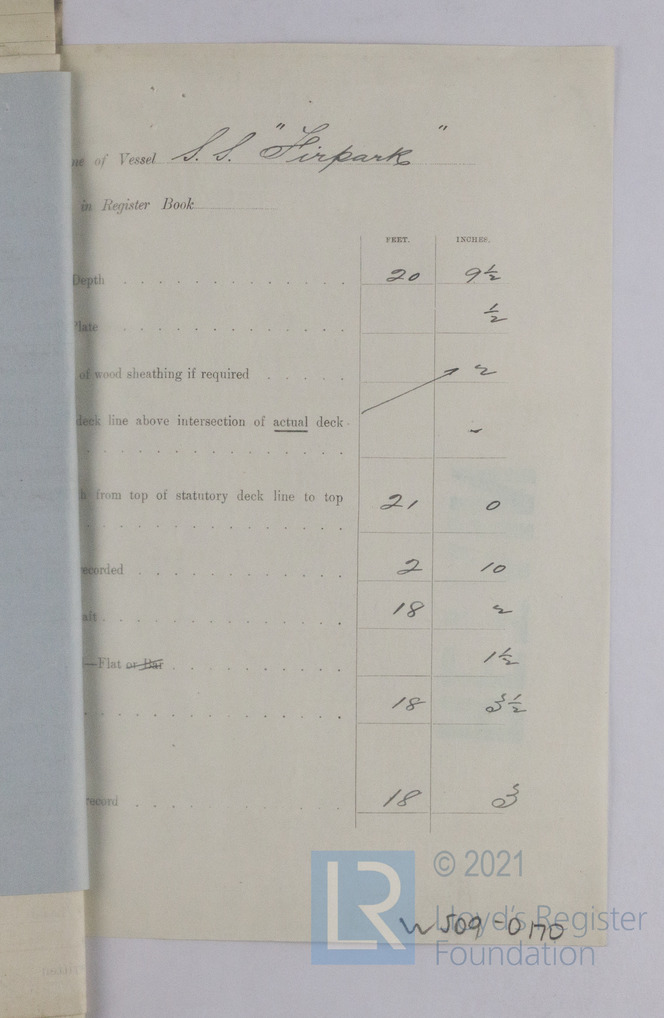 ne of Vessel S.S. "Firpark"
in Register Book
FEET. INCHES.
Depth 20 9½
Plate ½
of wood sheathing if required 2
deck line above intersection of actual deck -
h from top of statutory deck line to top 21 0
ecorded 2 10
18 2
—Flat or Bar 1½
18 3½
record 18 3
LR © 2021
Lloyd's Register
Foundation
W509-0170